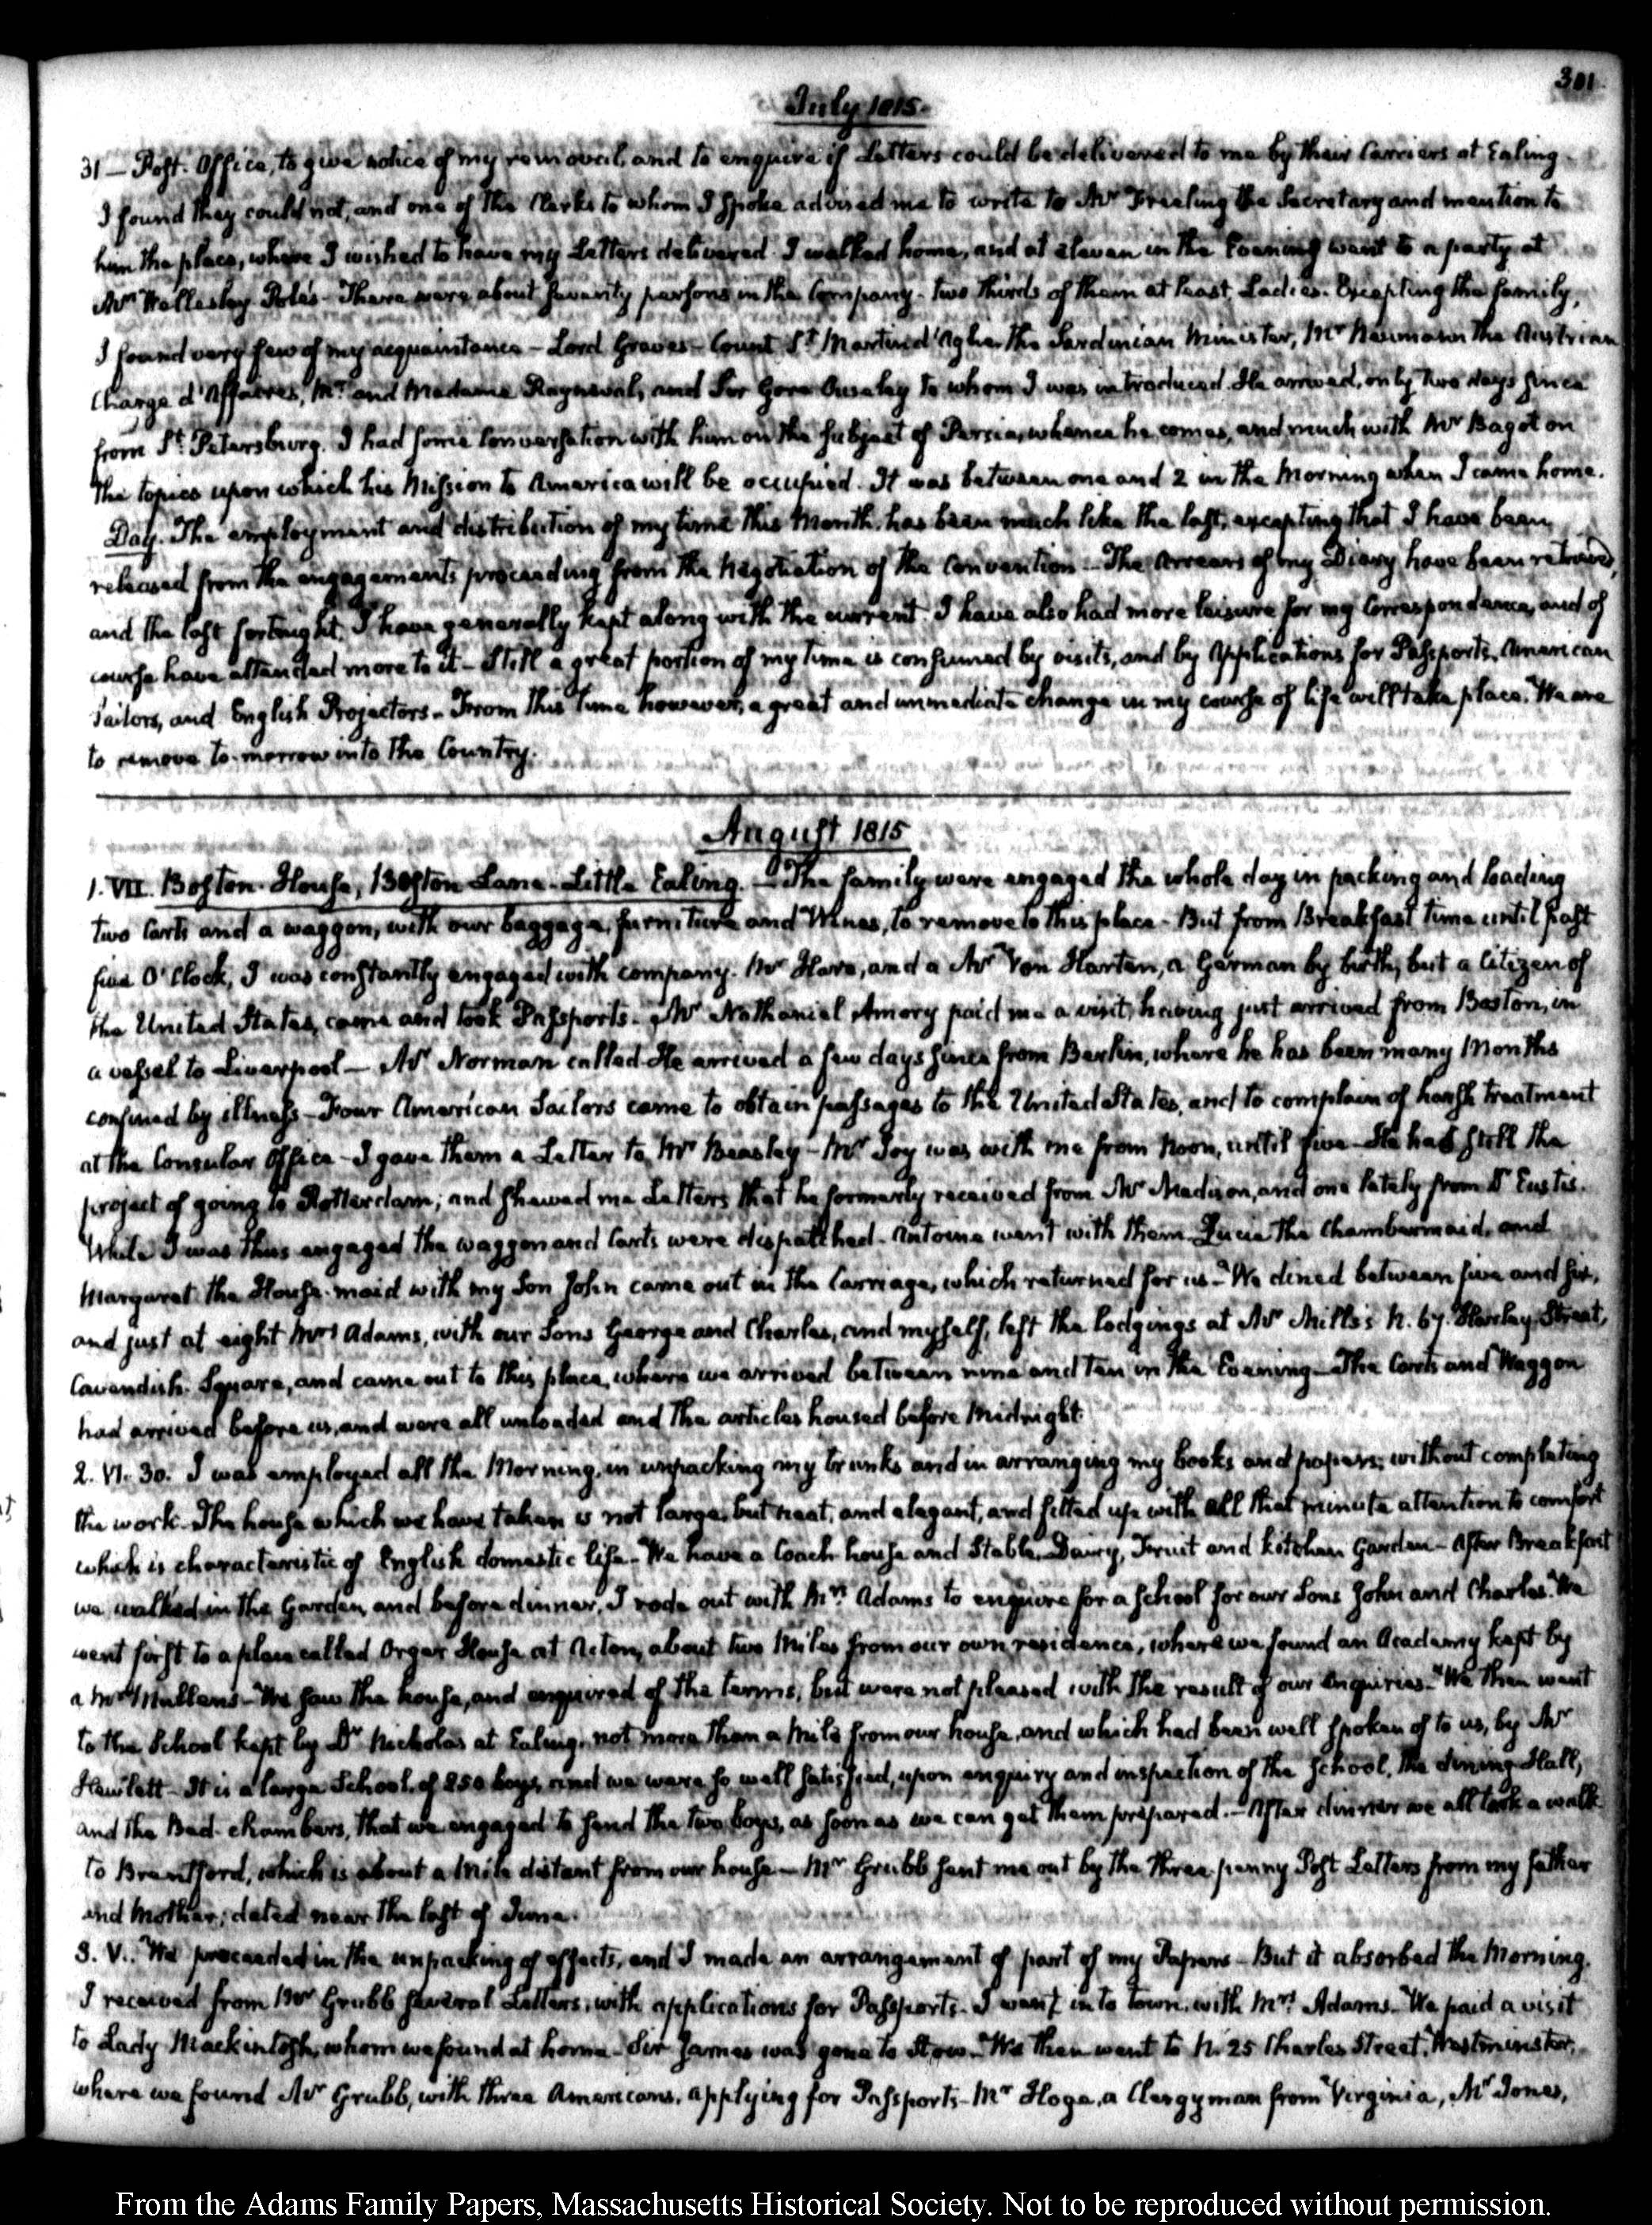 301.
July 1815.
31 — Post-Office, to give notice of my removal, and to enquire if Letters could be delivered to me by their Carriers at Ealing.
I found they could not, and one of the Clerks to whom I spoke advised me to write to Mr Freeling the Secretary and mention to
him the place, where I wished to have my Letters delivered. I walked home, and at eleven in the Evening went to a party at
Mr Wellesley Pole's. There were about seventy persons in the Company - two thirds of them at least, Ladies. Excepting the family,
I found very few of my acquaintance - Lord Graves - Count St Martin d'Aglie the Sardinian Minister, Mr Neumann the Austrian
Chargé d'Affaires, Mr and Madame Rayneval, and Sir Gore Ouseley to whom I was introduced. He arrived, only two days since
from St Petersburg. I had some conversation with him on the subject of Persia, whence he comes, and much with Mr Bagot on
the topics upon which his Mission to America will be occupied. It was between one and 2 in the Morning when I came home.
Day. The employment and distribution of my time this Month, has been much like the last, excepting that I have been
released from the engagements proceeding from the Negotiation of the Convention - The Arrears of my Diary have been retrieved,
and the last fortnight, I have generally kept along with the current. I have also had more leisure for my Correspondence, and of
course have attended more to it - Still a great portion of my time is consumed by visits, and by Applications for Passports, American
Sailors, and English Projectors - From this time however, a great and immediate change in my course of life will take place. We are
to remove to-morrow into the Country.
August 1815
1. VII. Boston-House, Boston Lane - Little Ealing. - The family were engaged the whole day in packing and loading
two Carts and a waggon, with our baggage, furniture and Wines, to remove to this place - But from Breakfast time until past
five O'Clock, I was constantly engaged with company. Mr Hare, and a Mr Von Harten, a German by birth, but a Citizen of
the United States, came and took Passports. Mr Nathaniel Amory paid me a visit, having just arrived from Boston, in
a vessel to Liverpool - Mr Norman called. He arrived a few days since from Berlin, where he has been many Months
confined by illness - Four American Sailors came to obtain passages to the United States, and to complain of harsh treatment
at the Consular Office - I gave them a Letter to Mr Beasley - Mr Joy was with me from Noon, until five - He had still the
project of going to Rotterdam; and shewed me Letters that he formerly received from Mr Madison, and one lately from Dr Eustis.
While I was thus engaged the waggon and Carts were dispatched. Antoine went with them. Lucia the Chambermaid, and
Margaret the House-maid with my Son John came out in the Carriage, which returned for us - We dined between five and six,
and just at eight Mrs Adams, with our Sons George and Charles, and myself, left the lodgings at Mr Mills's N. 67. Harley Street,
Cavendish-Square, and came out to this place, where we arrived between nine and ten in the Evening - The Carts and Waggon
had arrived before us, and were all unloaded and the articles housed before Midnight.
2. VI. 30. I was employed all the Morning, in unpacking my trunks and in arranging my books and papers; without completing
the work. The house which we have taken is not large, but neat, and elegant, and fitted up with all that minute attention to comfort
which is characteristic of English domestic life - We have a Coach-house and Stable, Dairy, Fruit and kitchen Garden - After Breakfast
we walked in the Garden, and before dinner, I rode out with Mrs Adams to enquire for a school for our Sons John and Charles. We
went first to a place called Orger House at Acton, about two Miles from our own residence, where we found an Academy kept by
a Mr Mullens - We saw the house, and enquired of the terms; but were not pleased with the result of our Enquiries - We then went
to the School kept by Dr Nicholas at Ealing, not more than a Mile from our house, and which had been well spoken of to us, by Mr
Hewlett - It is a large School, of 250 boys, and we were so well satisfied, upon enquiry and inspection of the School, the dining Hall,
and the Bed-chambers, that we engaged to send the two boys, as soon as we can get them prepared. - After dinner we all took a walk
to Brentford, which is about a Mile distant from our house - Mr Grubb sent me out by the three-penny Post Letters from my father
and Mother; dated near the last of June.
3. V. We proceeded in the unpacking of effects, and I made an arrangement of part of my Papers - But it absorbed the Morning.
I received from Mr Grubb several Letters, with applications for Passports. I went into town, with Mrs Adams. We paid a visit
to Lady Mackintosh, whom we found at home - Sir James was gone to Stow. We then went to N. 25 Charles Street, Westminster,
where we found Mr Grubb, with three Americans, applying for Passports - Mr Hoge, a Clergyman from Virginia, Mr Jones,
From the Adams Family Papers, Massachusetts Historical Society. Not to be reproduced without permission.